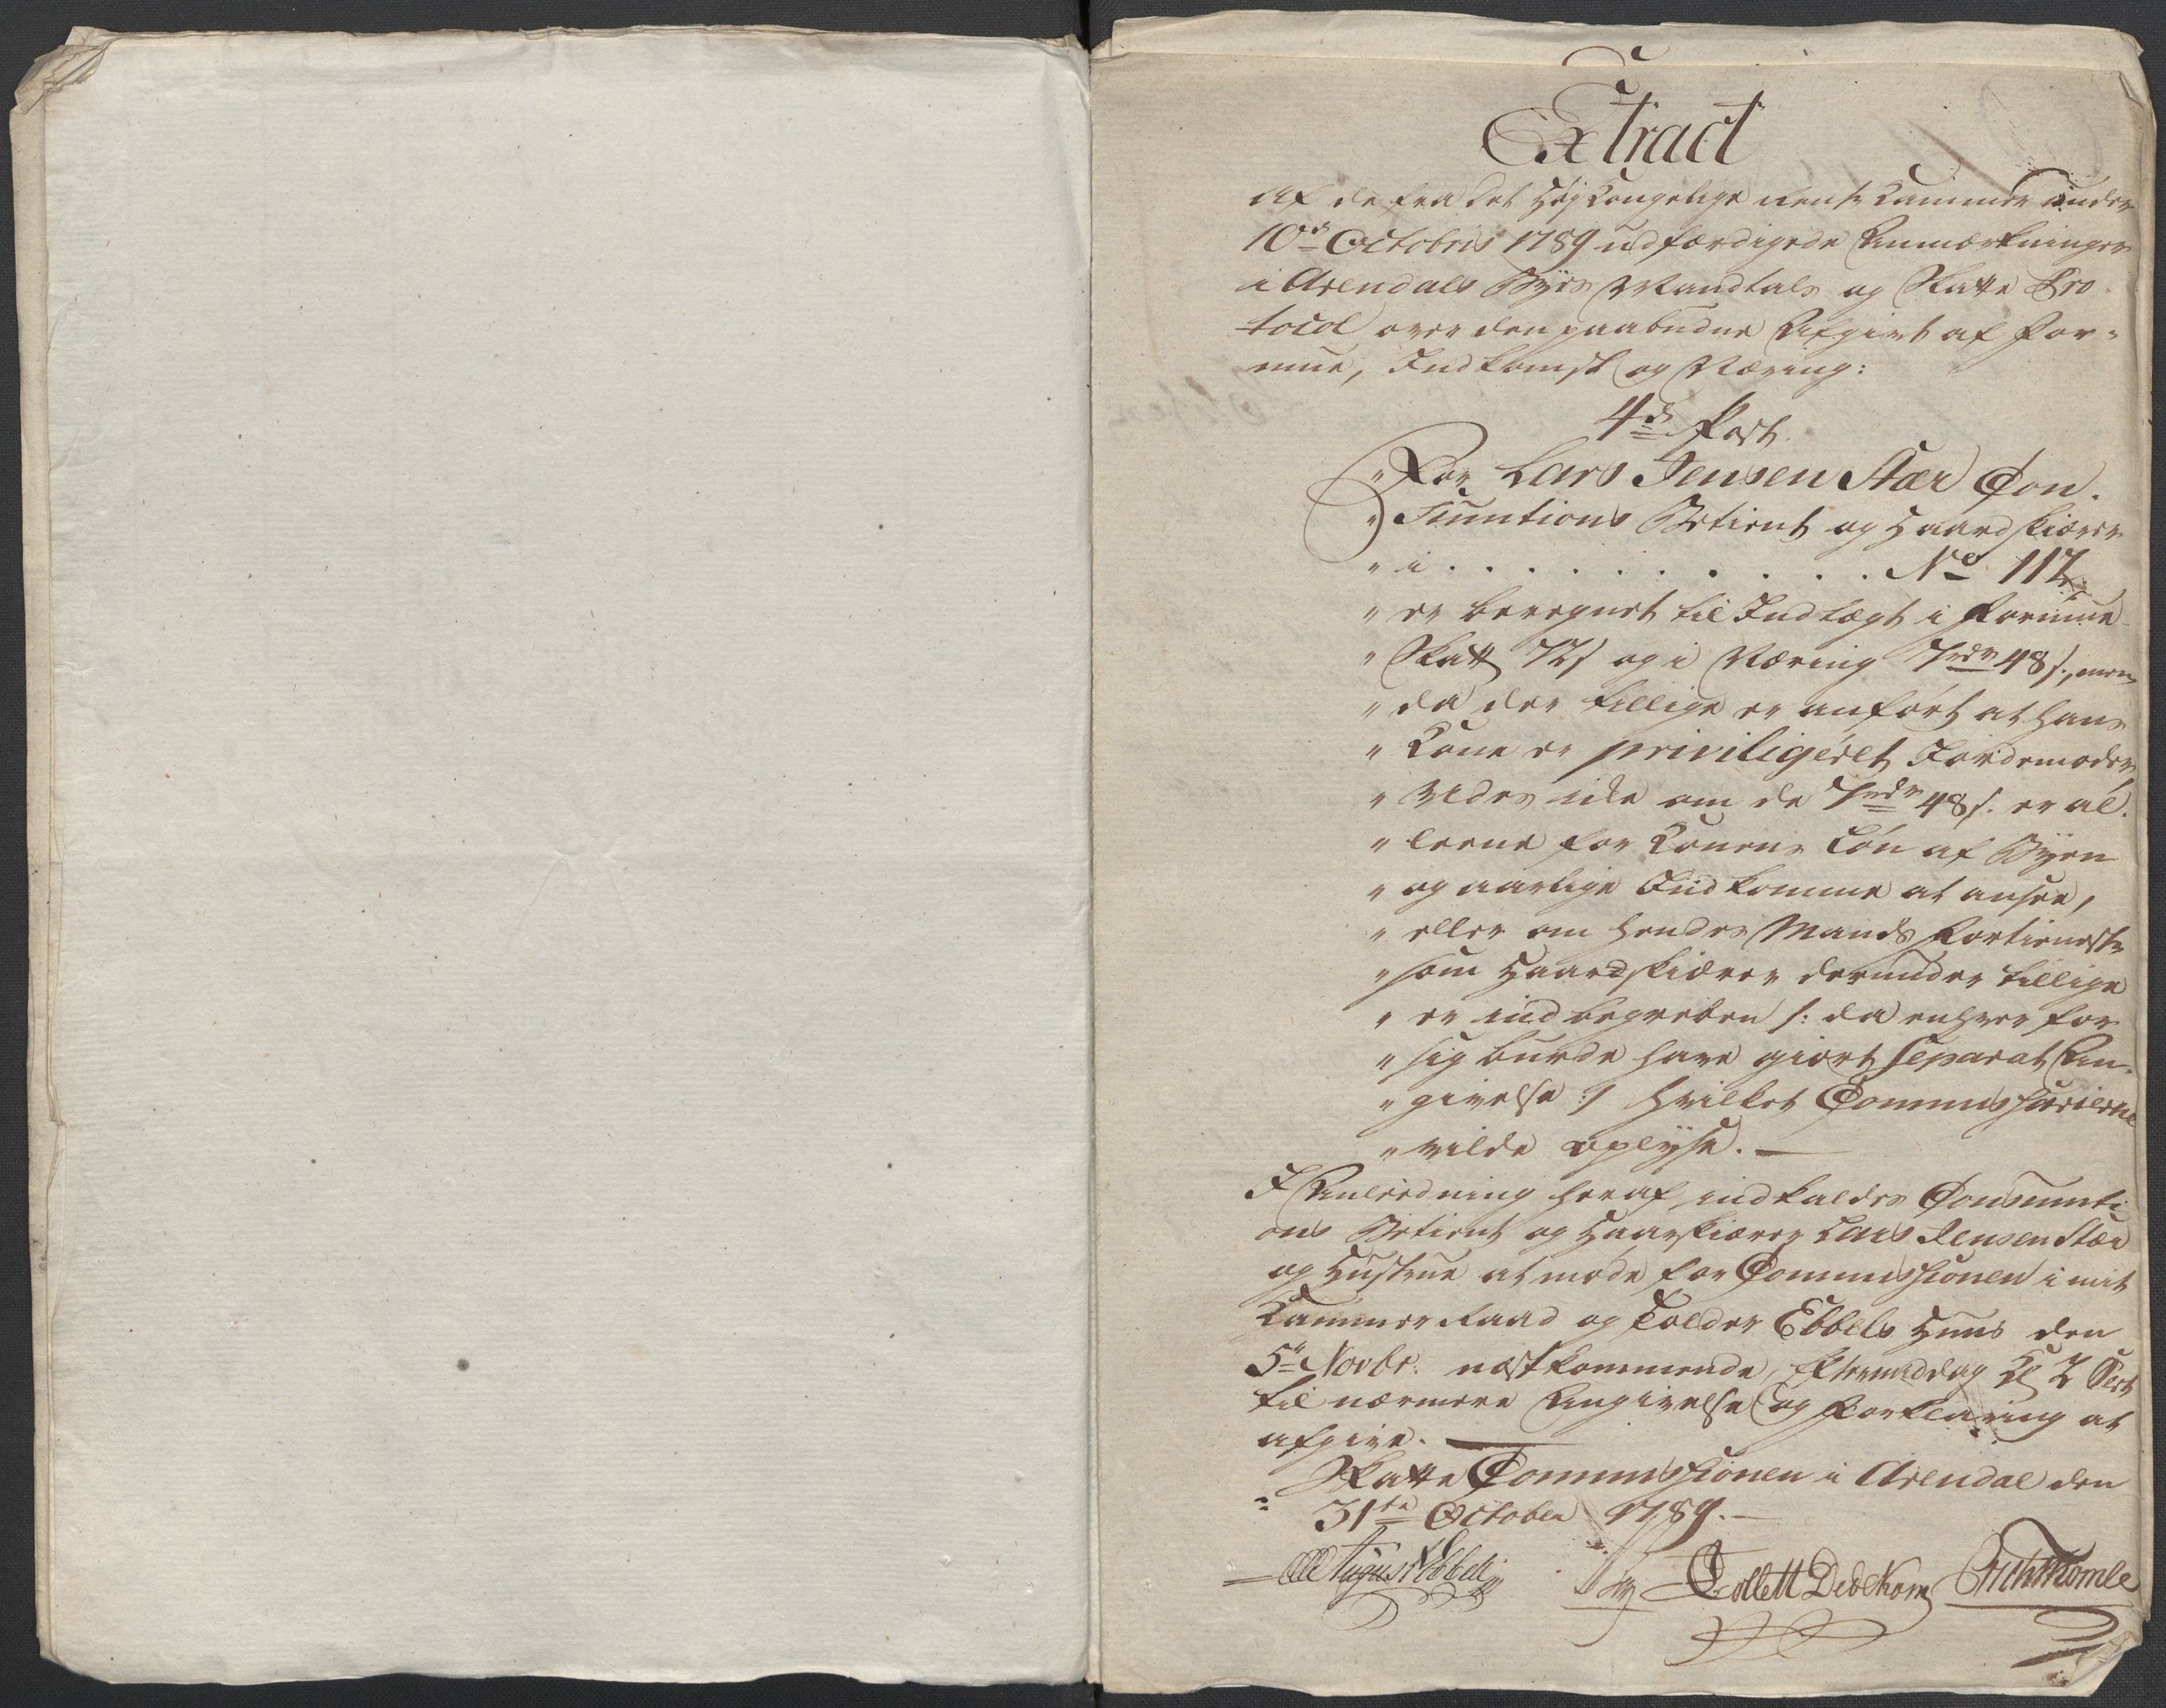 Extract
af de fra det Høj Kongelige Rente Cammer under
10de Octobris 1789 udfærdigede Anmærkninger
i Arendals Byes Mandtals og Skatte Pro-
tocol over den paabudne Afgivt af For-
mue, Indkomst og Næring:
4de Post.
" For Lars Jensen Stær Con-
" sumtions Betient og Haardskiærer
" i . . . . . . . . . . . . No 112
" er beregnet til Indtægt i Formue
" Skatt 72s og i Næring 7rdr 48s., men
" da der tillige er anført at hans
" Kone er priviligeret Jordemoder,
" Vides icke om de 7rdr 48s. er al-
" leene for Konens Løn af Byen
" og aarlige Indkomme at ansee,
" eller om hendes Mands Fortieneste
" som Haardskiærer derunder tillige
" er indbegreben /: da enhver for
" sig burde have giort separat An-
" givelse :/ hvilket Commissarierne
" vilde oplyse. —
I Anledning heraf indkaldes Consumti-
ons Betient og Haarskiærer Lars Jensen Stær
og Hustrue at møde for Commissionen i mit
Kammer Raad og Tolder Ebbels Huus den
5te Novbr: nestkommende, Eftermiddag Kl 2 Slet
til nærmere Angivelse og Forklaring at
afgive. —
Skatte Commissionen i Arendal den
31te October 1789. —
August Ebbell
Collett Dedekam